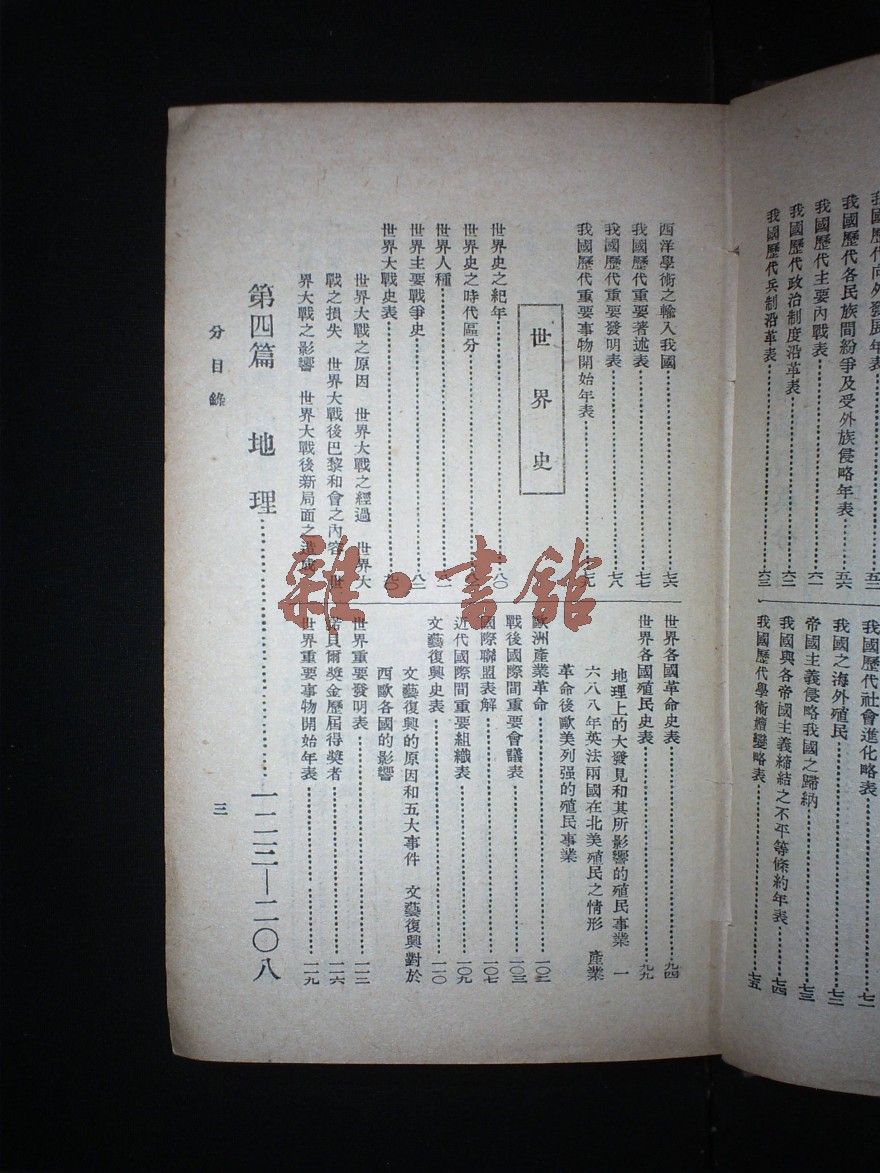 我國歷代向外發展年表……五三
我國歷代各民族間紛爭及受外族侵略年表……五六
我國歷代主要內戰表……六一
我國歷代政治制度沿革表……六二
我國歷代兵制沿革表……六三
我國歷代社會進化略表……七一
我國之海外殖民……七二
帝國主義侵略我國之歸納……七三
我國與各帝國主義締結之不平等條約年表……七四
我國歷代學術嬗變略表……七五
西洋學術之輸入我國……七六
我國歷代重要著述表……七七
我國歷代重要發明表……七八
我國歷代重要事物開始年表……七九
世界史
世界史之紀年……八〇
世界史之時代區分……八〇
世界人種……八一
世界主要戰爭史……八二
世界大戰史表……九〇
世界大戰之原因 世界大戰之經過 世界大
戰之損失 世界大戰後巴黎和會之內容 世
界大戰之影響 世界大戰後新局面之造成
世界各國革命史表……九四
世界各國殖民史表……九九
地理上的大發見和其所影響的殖民事業 一
六八八年英法兩國在北美殖民之情形 產業
革命後歐美列强的殖民事業
歐洲產業革命……一〇二
戰後國際間重要會議表……一〇三
國際聯盟表解……一〇七
近代國際間重要組織表……一〇九
文藝復興史表……一一〇
文藝復興的原因和五大事件 文藝復興對於
西歐各國的影響
世界重要發明表……一一二
諾貝爾獎金歷屆得獎者……一一六
世界重要事物開始年表……一一九
第四篇 地理……一二三—二〇八
分目錄
三
雜·書館